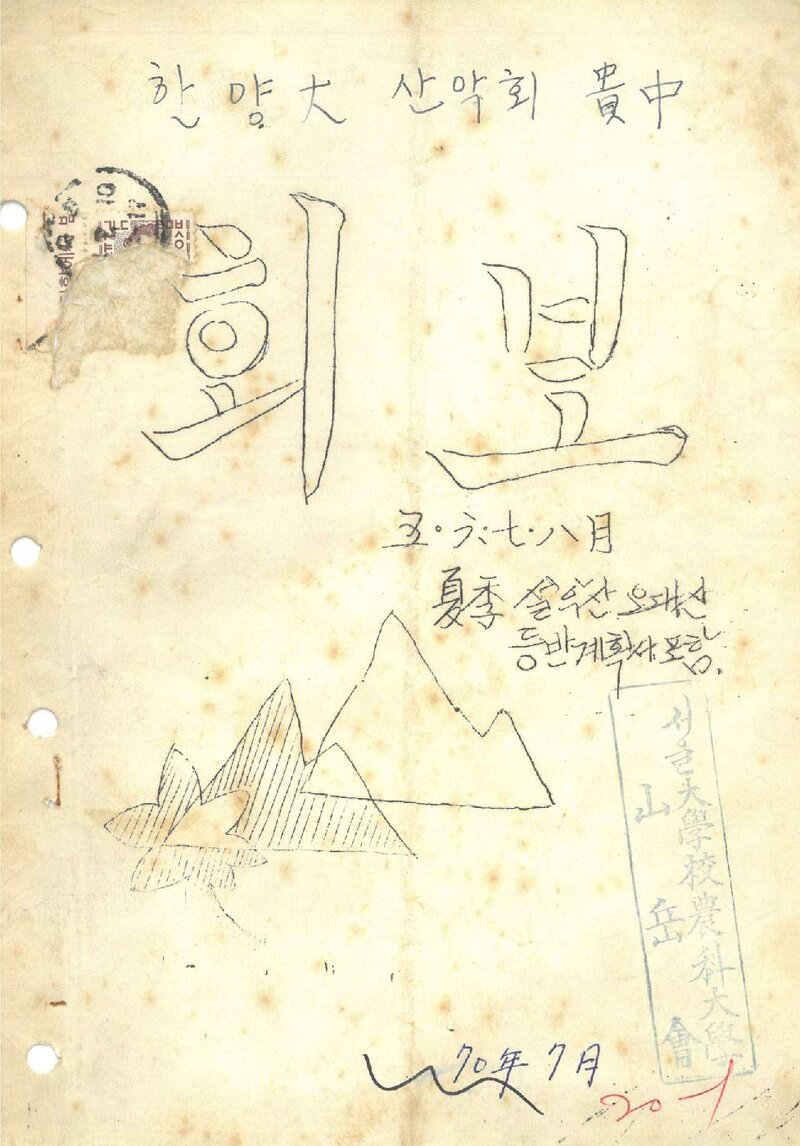 한양大 산악회 貴中
회보
五·六·七·八月
夏季 설악산 오대산
등반계획서 포함.
서울大學校農科大學
山岳會
70年 7月
20-1